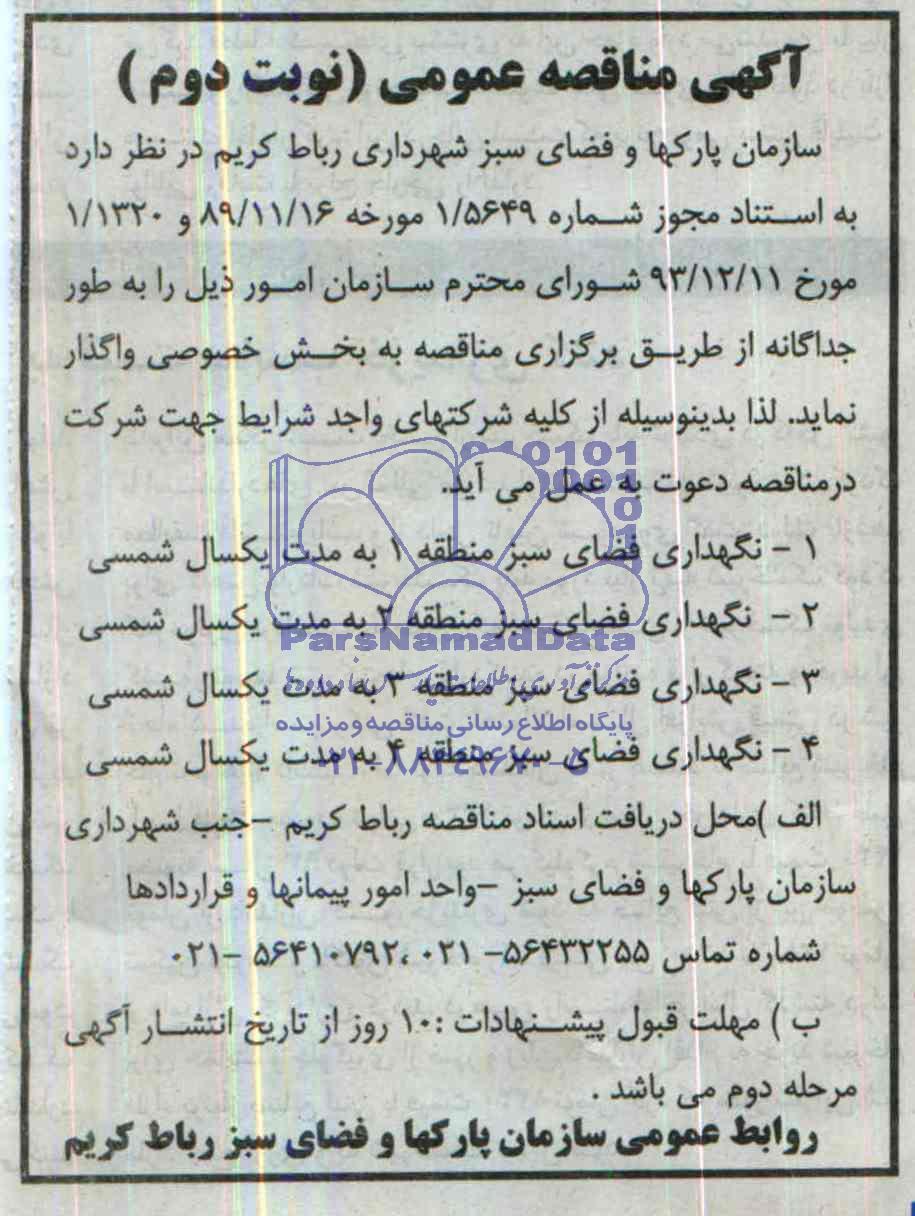 آگهی مناقصه عمومی (نوبت دوم )
سازمان پارکها و فضای سبز شهرداری رباط کریم در نظر دارد
به استناد مجوز شماره ۱/۵۶۴۹ مورخه ۸۹/۱۱/۱۶ و ۱/۱۳۲۰
مورخ ۹۳/۱۲/۱۱ شورای محترم سازمان امور ذیل را به طور
جداگانه از طریق برگزاری مناقصه به بخش خصوصی واگذار
نماید. لذا بدینوسیله از کلیه شرکتهای واجد شرایط جهت شرکت
درمناقصه دعوت به عمل می آید.
۱ - نگهداری فضای سبز منطقه ۱ به مدت یکسال شمسی
۲ - نگهداری فضای سبز منطقه ۲ به مدت یکسال شمسی
ParsNamadData
۳ - نگهداری فضای سبز منطقه ۳ به مدت یکسال شمسی
پایگاه اطلاع رسانی مناقصه و مزایده
۴ - نگهداری فضای سبز منطقه ۴ به مدت یکسال شمسی
الف )محل دریافت اسناد مناقصه رباط کریم -جنب شهرداری
سازمان پارکها و فضای سبز -واحد امور پیمانها و قراردادها
شماره تماس ۵۶۴۳۲۲۵۵- ۰۲۱ ،۵۶۴۱۰۷۹۲ -۰۲۱
ب ) مهلت قبول پیشنهادات :۱۰ روز از تاریخ انتشار آگهی
مرحله دوم می باشد .
روابط عمومی سازمان پارکها و فضای سبز رباط کریم